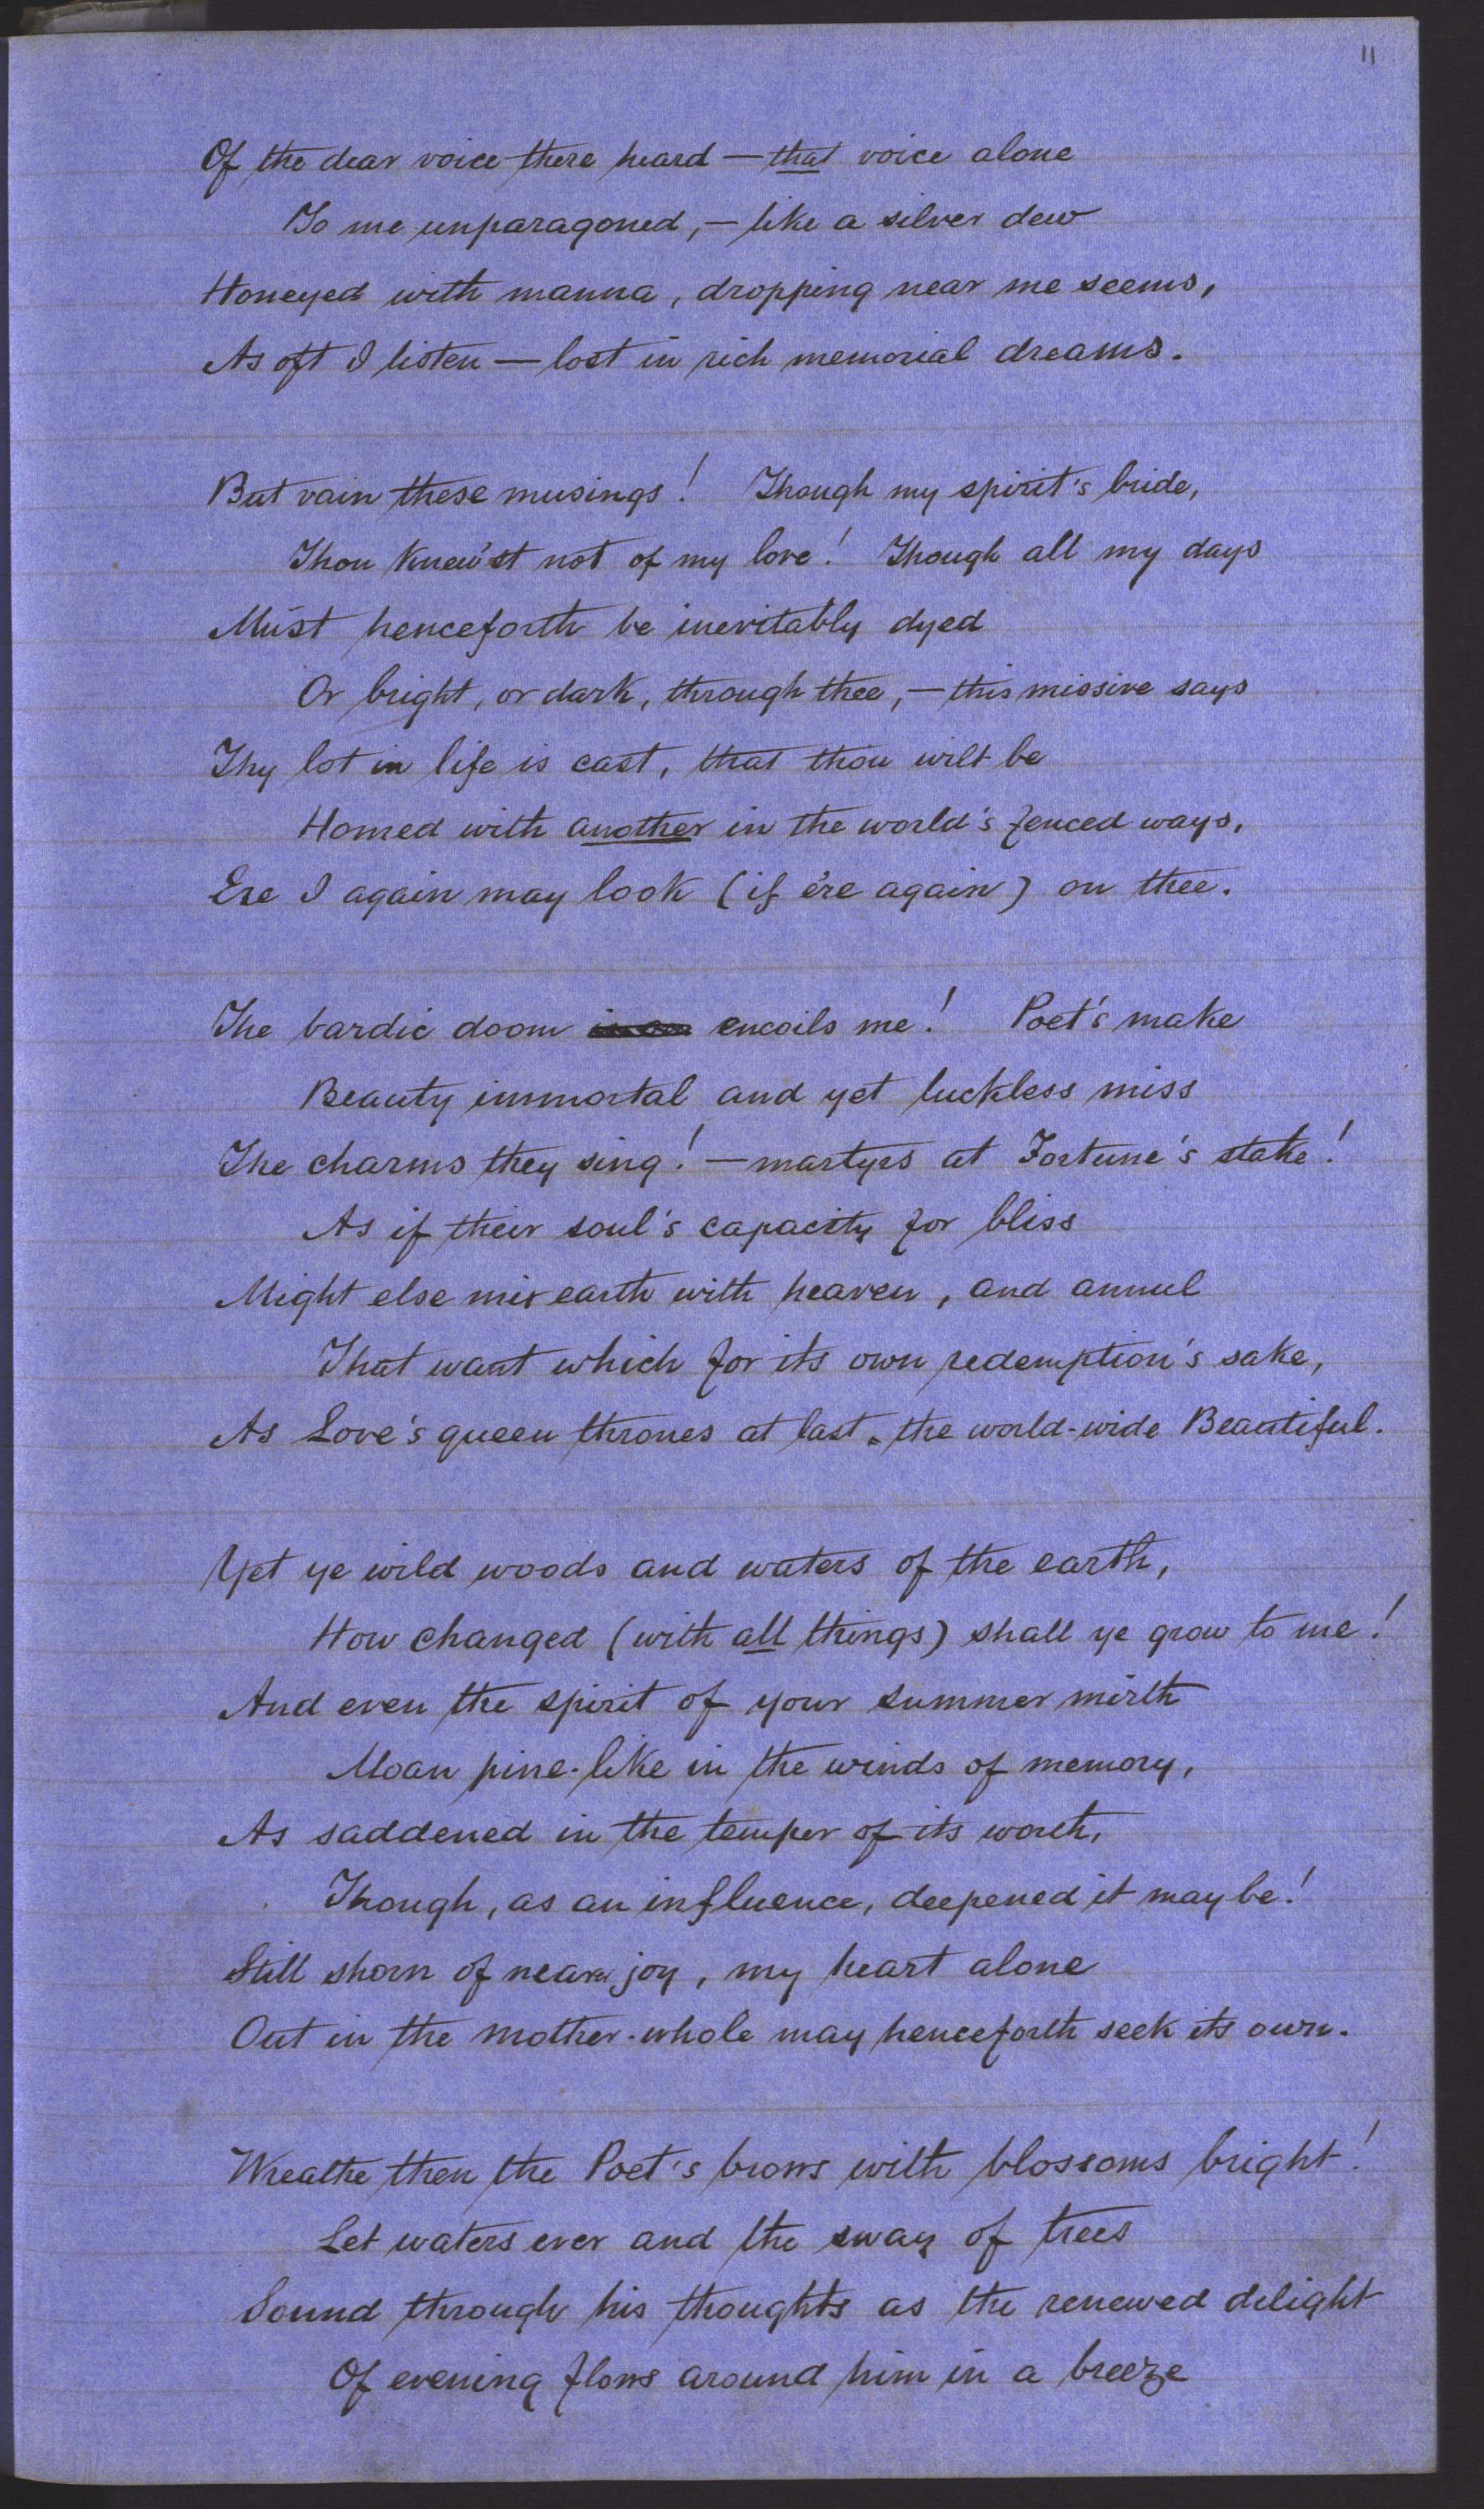 11
Of the dear voice there heard — that voice alone
To me unparagoned, — like a silver dew
Honeyed with manna, dropping near me seems,
As oft I listen — lost in rich memorial dreams.
But vain these musings! Though my spirit's bride,
Thou knew'st not of my love! Though all my days
Must henceforth be inevitably dyed
Or bright, or dark, through thee, — this missive says
Thy lot in life is cast, that thou wilt be
Homed with another in the world's fenced ways,
Ere I again may look (if e're again) on thee.
The bardic doom encoils me! Poet's make
Beauty immortal and yet luckless miss
The charms they sing! — martyrs at Fortune's stake!
As if their soul's capacity for bliss
Might else mix earth with heaven, and annul
That want which for its own redemption's sake,
As Love's queen thrones at last the world-wide Beautiful.
Yet ye wild woods and waters of the earth,
How changed (with all things) shall ye grow to me!
And even the spirit of your summer mirth
Moan pine-like in the winds of memory,
As saddened in the temper of its worth,
Though, as an influence, deepened it may be!
Still shorn of nearer joy, my heart alone
Out in the mother-whole may henceforth seek its own.
Wreathe then the Poet's brows with blossoms bright!
Let waters ever and the sway of trees
Sound through his thoughts as the renewed delight
Of evening flows around him in a breeze